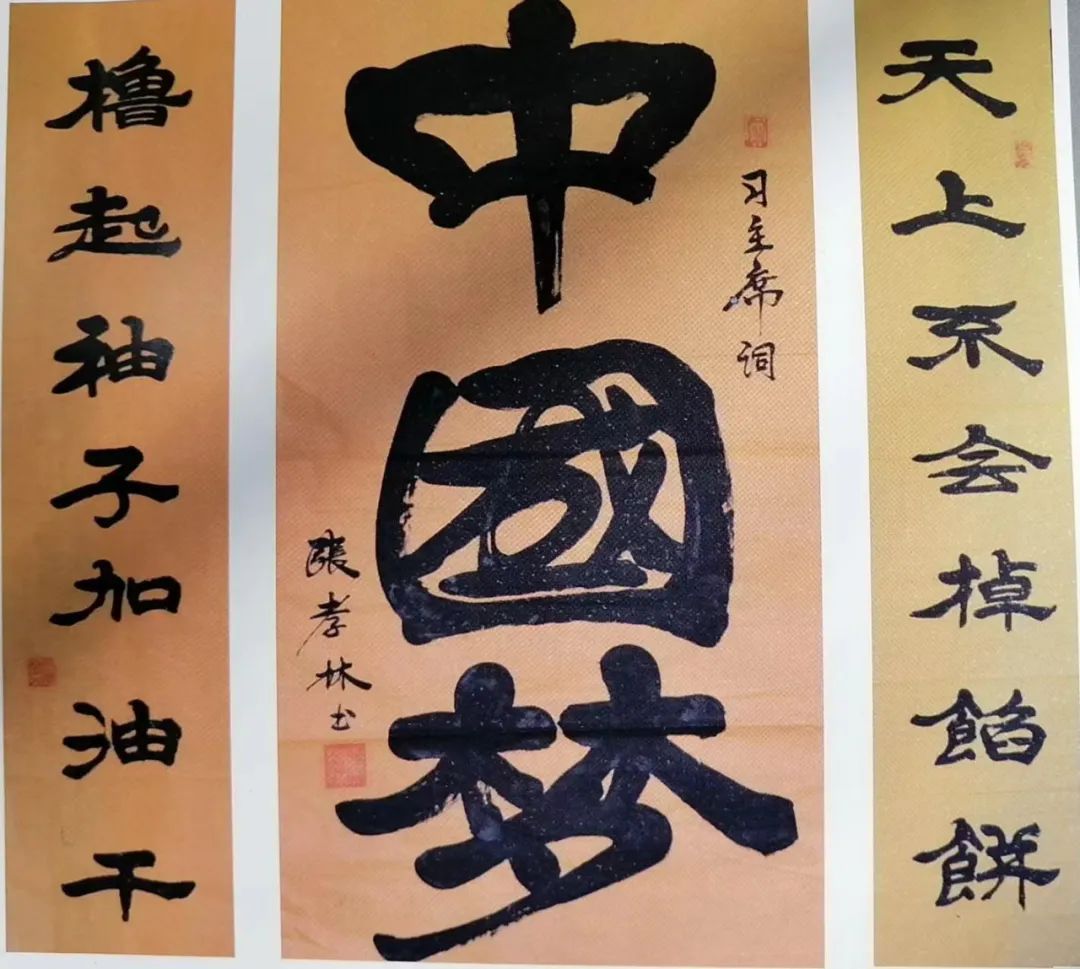 天上不会掉餡餅
习主席词
中國梦
張孝林书
橹起袖子加油干